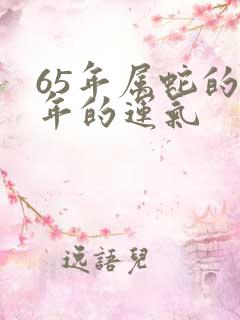 65年属蛇的
年的运氣
逸語兒